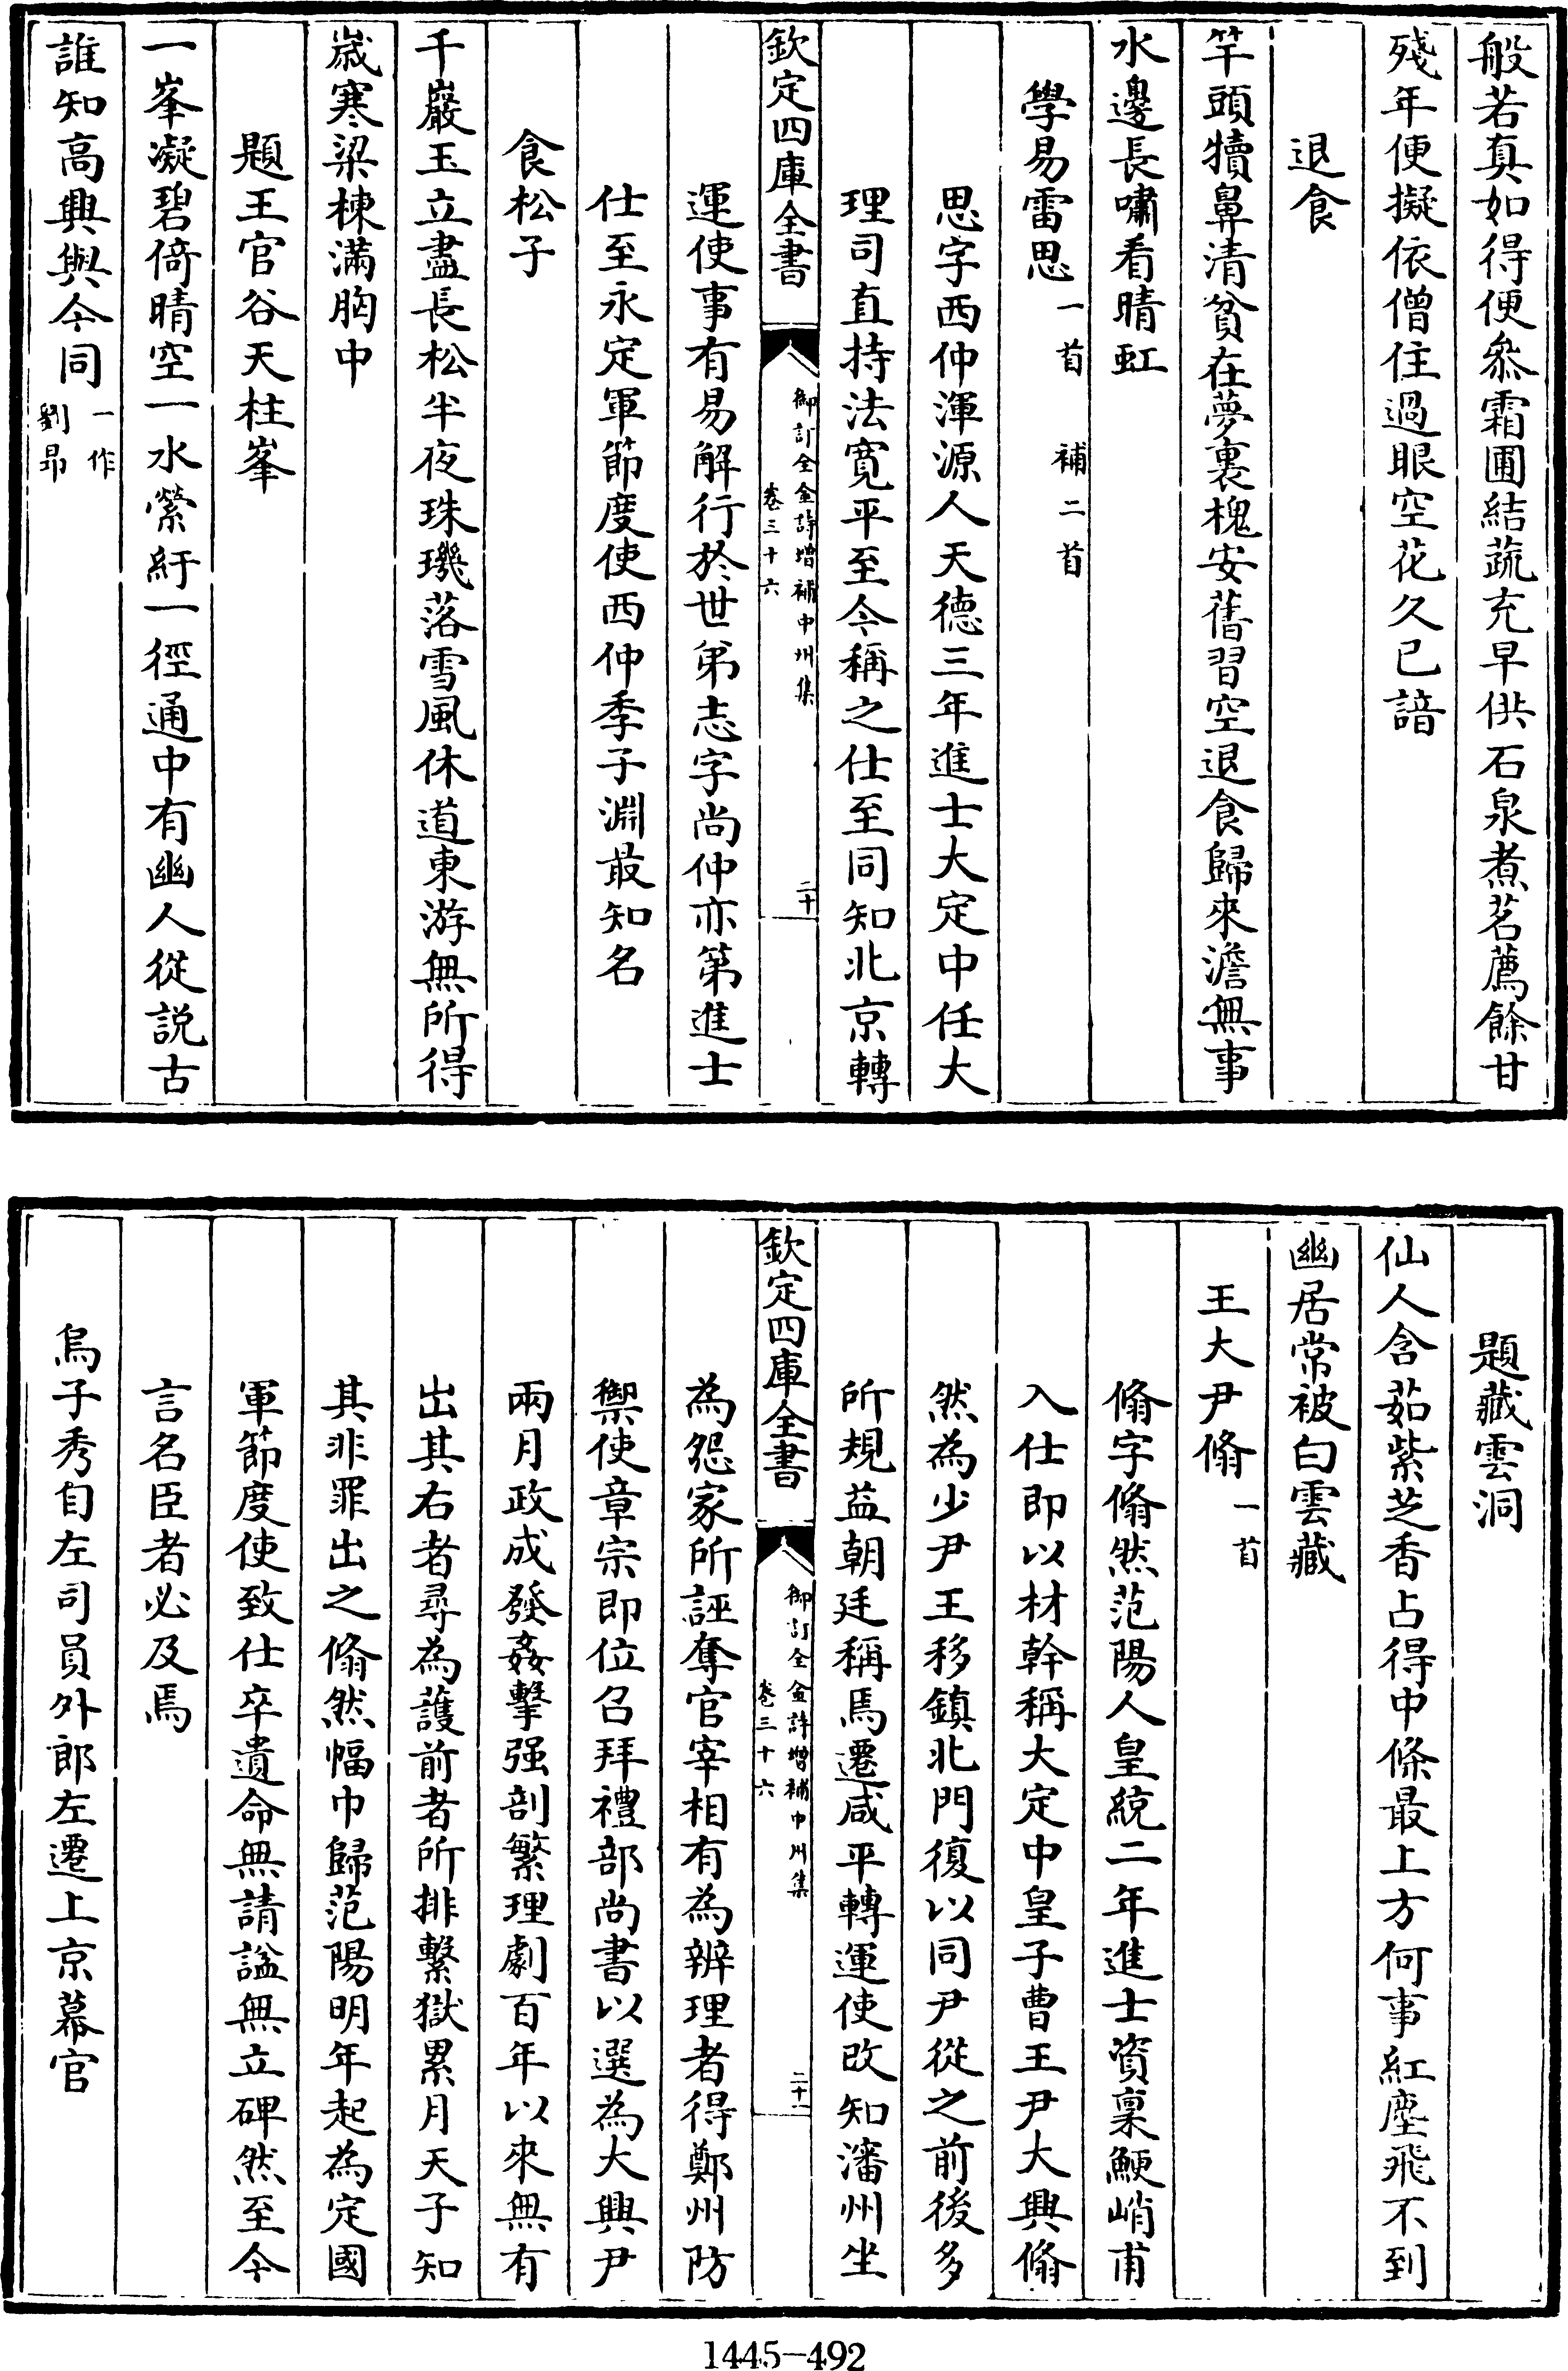 般若真如得便叅霜圃結蔬充早供石泉煮茗薦餘甘
殘年便擬依僧住過眼空花久已諳
退食
竿頭犢鼻清貧在夢裏槐安舊習空退食歸來澹無事
水邊長嘯看晴虹
學易雷思一首 補二首
思字西仲渾源人天德三年進士大定中任大
理司直持法寛平至今稱之仕至同知北京轉
欽定四庫全書 御訂全金詩增補中州集 卷三十六 二十
運使事有易解行於世弟志字尚仲亦第進士
仕至永定軍節度使西仲季子淵最知名
食松子
千巖玉立盡長松半夜珠璣落雪風休道東游無所得
歲寒梁棟滿胸中
題王官谷天柱峯
一峯凝碧倚晴空一水縈紆一徑通中有幽人從説古
誰知高興與今同一作劉昂
題藏雲洞
仙人含茹紫芝香占得中條最上方何事紅塵飛不到
幽居常被白雲藏
王大尹翛一首
翛字翛然范陽人皇統二年進士資稟鯁峭甫
入仕即以材幹稱大定中皇子曹王尹大興翛
然為少尹王移鎮北門復以同尹從之前後多
所規益朝廷稱焉遷咸平轉運使改知瀋州坐
欽定四庫全書 御訂全金詩增補中州集 卷三十六 二十一
為怨家所誣奪官宰相有為辨理者得鄭州防
禦使章宗即位召拜禮部尚書以選為大興尹
兩月政成發姦擊强剖繁理劇百年以來無有
出其右者尋為護前者所排繫獄累月天子知
其非罪出之翛然幅巾歸范陽明年起為定國
軍節度使致仕卒遺命無請諡無立碑然至今
言名臣者必及焉
烏子秀自左司員外郎左遷上京幕官
1445-492